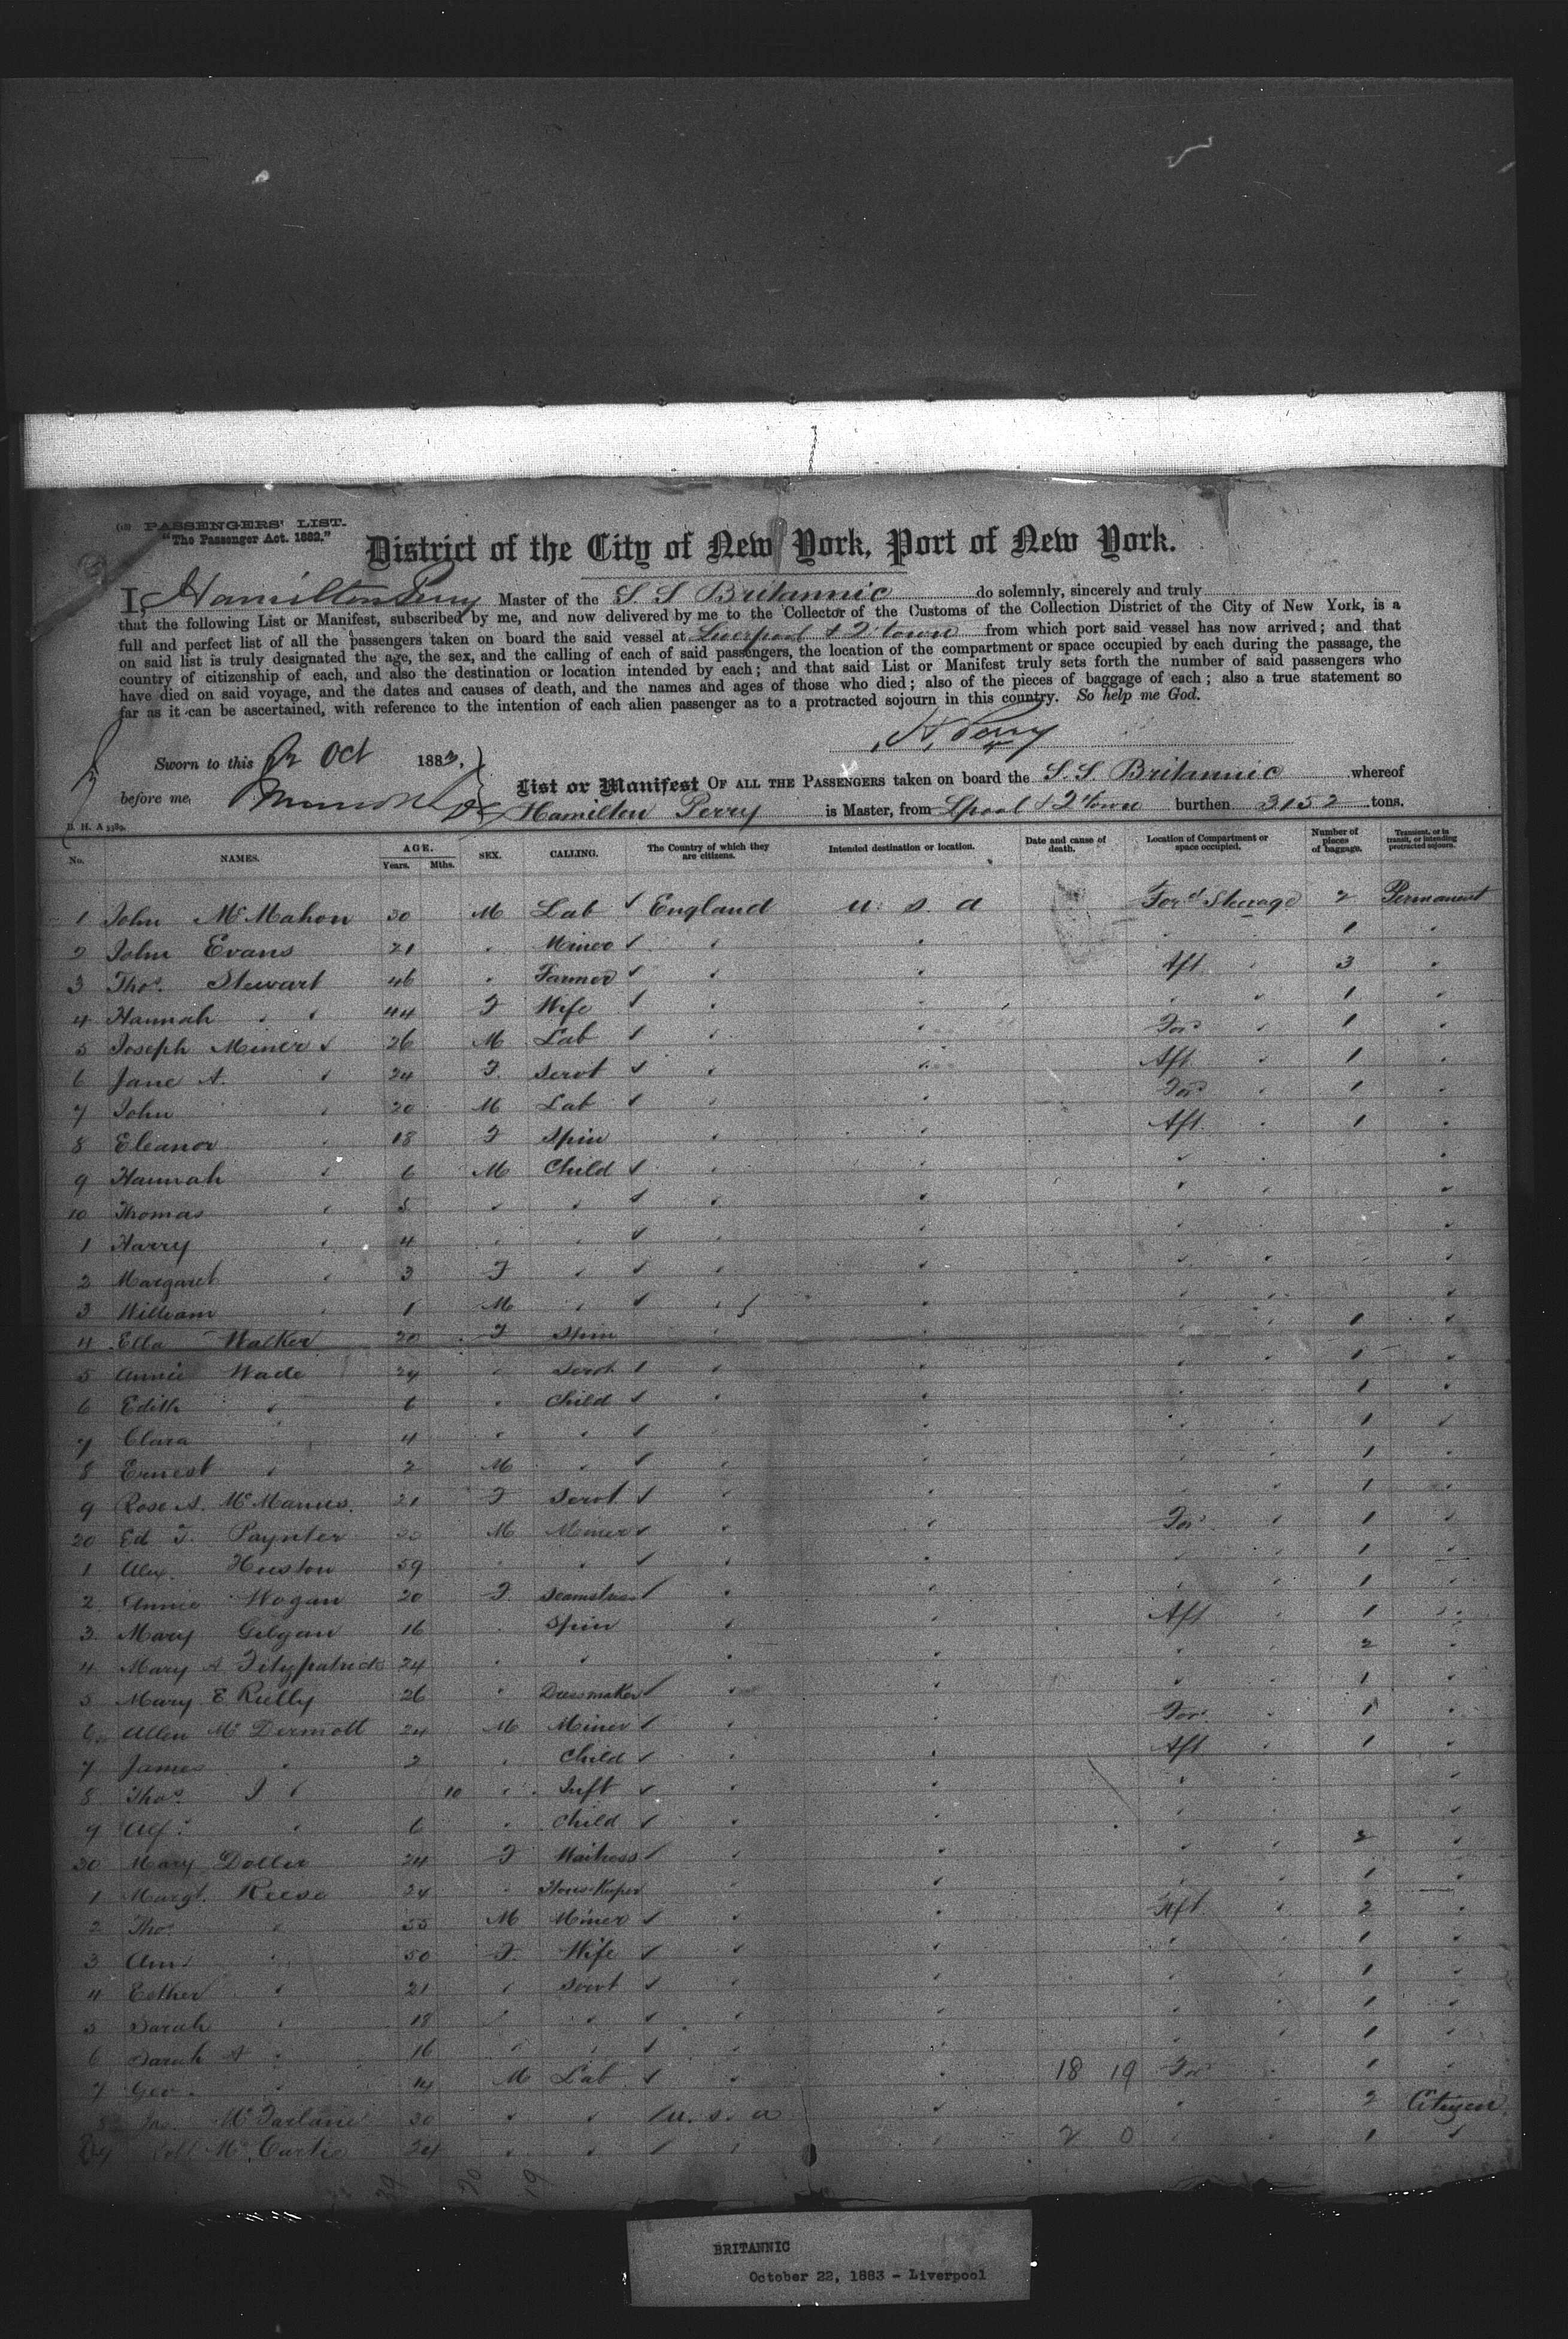 PASSENGERS' LIST.
"The Passenger Act. 1882."
District of the City of New York, Port of New York.
I, Hamilton Perry Master of the S. S Britannic do solemnly, sincerely and truly
that the following List or Manifest, subscribed by me, and now delivered by me to the Collector of the Customs of the Collection District of the City of New York, is a
full and perfect list of all the passengers taken on board the said vessel at Liverpool & Q'town from which port said vessel has now arrived; and that
on said list is truly designated the age, the sex, and the calling of each of said passengers, the location of the compartment or space occupied by each during the passage, the
country of citizenship of each, and also the destination or location intended by each; and that said List or Manifest truly sets forth the number of said passengers who
have died on said voyage, and the dates and causes of death, and the names and ages of those who died; also of the pieces of baggage of each; also a true statement so
far as it can be ascertained, with reference to the intention of each alien passenger as to a protracted sojourn in this country. So help me God.
H. Perry
Sworn to this 22 Oct 1883,
before me,
List or Manifest OF ALL THE PASSENGERS taken on board the S. S. Britannic whereof
Hamilton Perry is Master, from Lpool & Q'town burthen 3152 tons.
B. H. A
No. NAMES. AGE. Years. Mths. SEX. CALLING. The Country of which they are citizens. Intended destination or location. Date and cause of death. Location of Compartment or space occupied. Number of pieces of baggage. Transient, or in transit, or intending protracted sojourn.
1 John McMahon 30 M Lab ✓ England U. S. A Ford Steerage 2 Permanent
2 John Evans 21 " Miner ✓ " " " " 1 "
3 Thos. Stewart 46 " Farmer ✓ " " Aft " 3 "
4 Hannah " " 44 F Wife ✓ " " " " 1 "
5 Joseph Miner ✓ 26 M Lab ✓ " " For " 1 "
6 Jane A. " 24 F Servt ✓ " " Aft " 1 "
7 John " 20 M Lab ✓ " " For " 1 "
8 Eleanor " 18 F Spin " " Aft " 1 "
9 Hannah " 6 M Child ✓ " " " "
10 Thomas " 5 " " ✓ " " " " "
1 Harry " 4 " " ✓ " " " " "
2 Margaret " 3 F " ✓ " " " " "
3 William " 1 M " ✓ " " " " "
4 Ella Walker 20 F Spin " " " " 1 "
5 Annie Wade 24 " Servt ✓ " " " " 1 "
6 Edith " 6 " Child ✓ " " " " 1 "
7 Clara " 4 " " ✓ " " " " 1 "
8 Ernest " 2 M " ✓ " " " " 1 "
9 Rose A. McManus. 21 F Servt ✓ " " " " 1 "
20 Ed T. Paynter M Miner ✓ " " For " 1 "
1 Alex. Huston 59 " " ✓ " " " " 1 "
2 Annie Hogan 20 F Seamstress ✓ " " " " 1 "
3 Mary Gilgan 16 " Spin " " Aft " 1 "
4 Mary A Fitzpatrick 24 " " " " " 2 "
5 Mary E Reilly 26 " Dressmaker ✓ " " " " 1 "
6 Allen McDermott 24 M Miner ✓ " " For " 1 "
7 James " 2 " Child ✓ " " Aft " 1 "
8 Thos. J " 10 " Inft ✓ " " " "
9 Alf. " 6 " Child ✓ " " " " "
30 Mary Doller 24 F Waitress ✓ " " " " 2 "
1 Margt. Reese 24 " HouseKeeper " " " " 1 "
2 Thos " 55 M Miner ✓ " " Aft " 2 "
3 Ann " 50 F Wife ✓ " " " " 1 "
4 Esther " 21 " Servt ✓ " " " " 1 "
5 Sarah " 18 " " ✓ " " " " 1 "
6 Sarah A " 16 " " ✓ " " " " 1 "
7 Geo. " 14 M Lab ✓ " " 18 19 For " 1 "
8 Jas. McFarlane 30 " " U. S. A " " " 2 Citizen
McCurtie 24 " " " " " 2 0 " " 1 "
BRITANNIC
October 22, 1883 - Liverpool